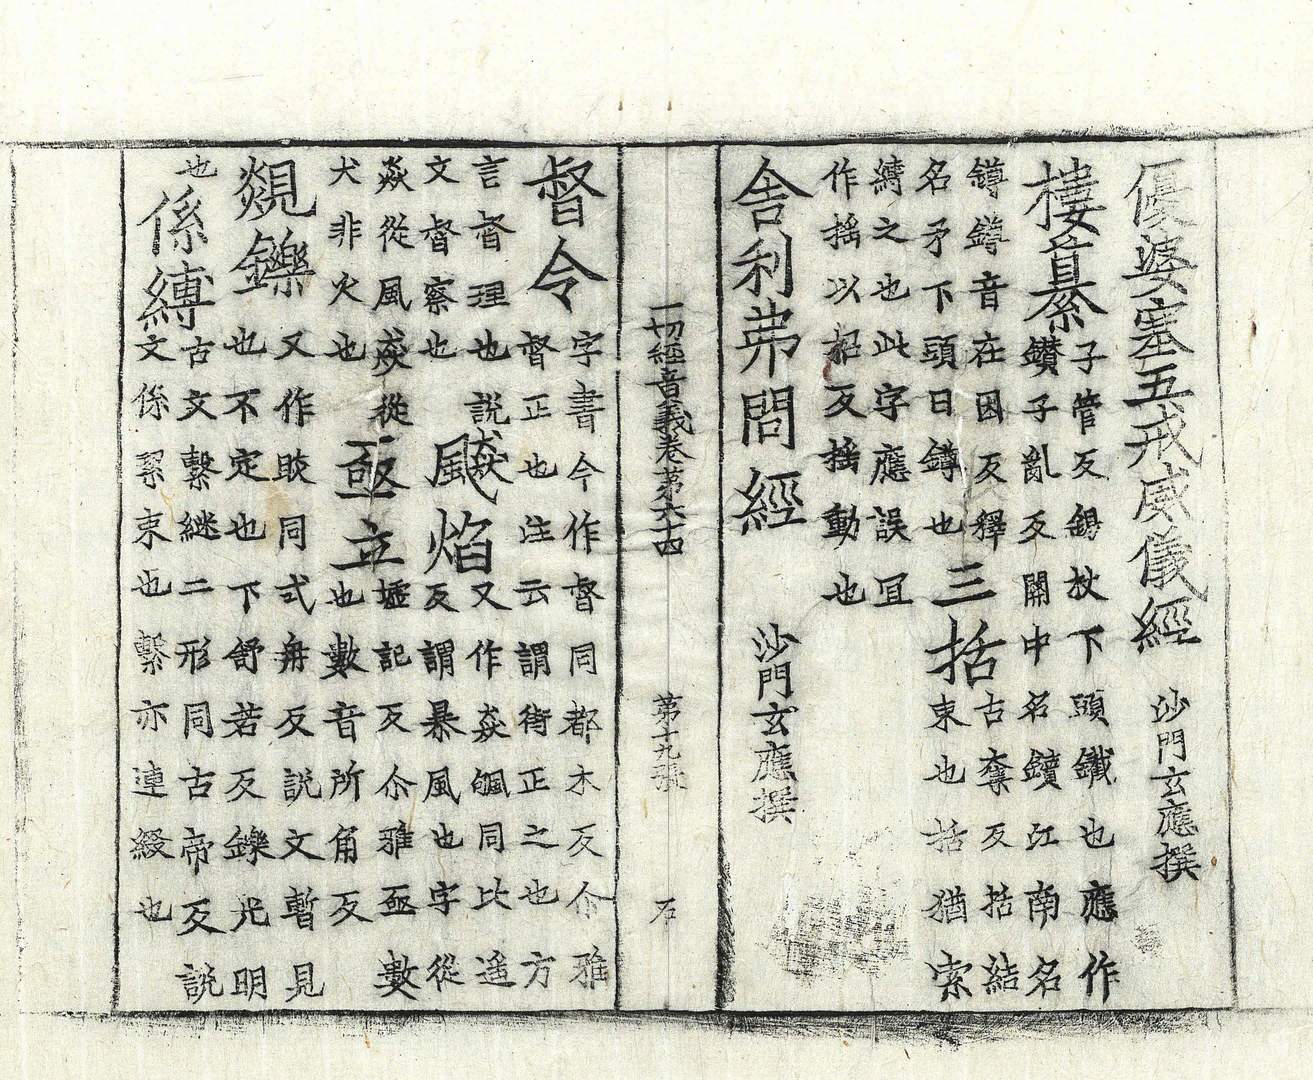 優婆塞五戒威儀經 沙門玄應撰
樓纂
子管反錫杖下頭鐵也應作
鑽子亂反關中名鑽江南名
鐏鐏音在困反釋
名矛下頭曰鐏也
三括
古奪反括結
束也括猶索
縳之也此字應誤冝
作揺以招反揺動也
舍利弗問經 沙門玄應撰
一切經音義卷第六十四 第十九張 石
督令
字書今作督同都木反尒雅
督正也注云謂御正之也方
言督理也説
文督察也
颷焰
又作猋飊同比遥
反謂暴風也字從
猋從風猋從
犬非火也
亟立
墟記反尒雅亟數
也數音所角反
覢鑠
又作睒同式冉反説文暫見
也不定也下舒若反鑠光明
也
係縛
古文繫継二形同古帝反説
文係絜束也繫亦連綴也